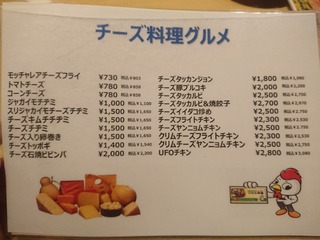 チーズ料理グルメ
モッチャレアチーズフライ ¥730 税込¥803
トマトチーズ ¥780 税込¥858
コーンチーズ ¥780 税込¥858
ジャガイモチヂミ ¥1,000 税込¥1,100
スリジャガイモチーズチヂミ ¥1,500 税込¥1,650
チーズキムチチヂミ ¥1,500 税込¥1,650
チーズチヂミ ¥1,500 税込¥1,650
チーズ入り卵巻き ¥1,500 税込¥1,650
チーズトッポギ ¥1,400 税込¥1,540
チーズ石焼ビビンバ ¥2,000 税込¥2,200
チーズタッカンジョン ¥1,800 税込¥1,980
チーズ豚プルコギ ¥2,000 税込¥2,200
チーズタッカルビ ¥2,500
チーズタッカルビ&焼餃子 ¥2,700 税込¥2,970
チーズイイダコ炒め ¥2,500
チーズフライトチキン ¥2,300 税込¥2,530
チーズヤンニョムチキン ¥2,500
クリムチーズフライトチキン ¥2,300 税込¥2,530
クリムチーズヤンニョムチキン ¥2,500
UFOチキン ¥2,800 税込¥3,080